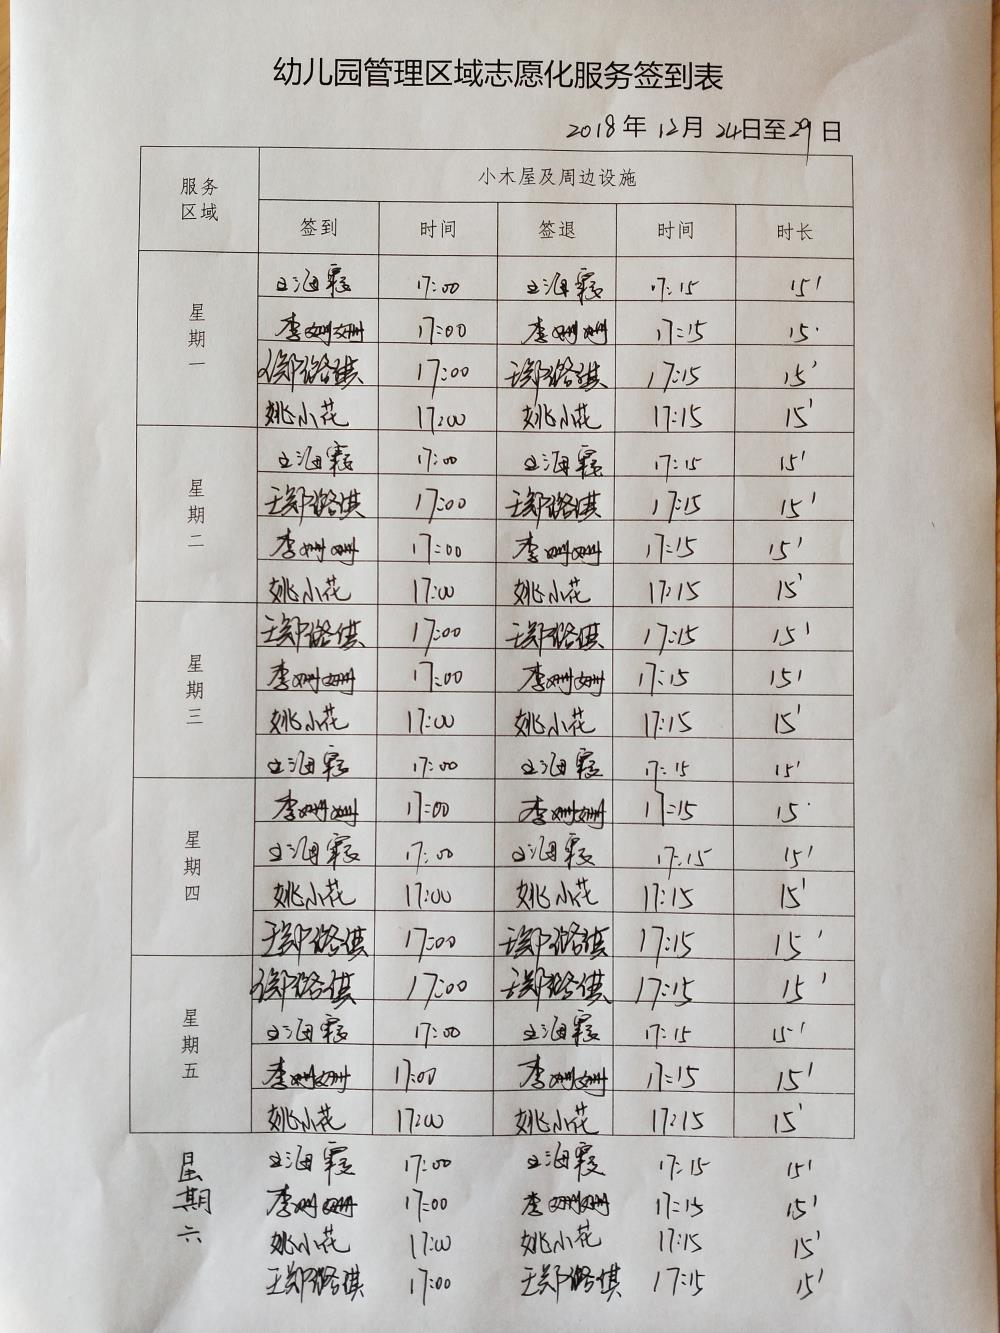 幼儿园管理区域志愿化服务签到表
2018年12月24日至29日
服务区域 小木屋及周边设施
签到 时间 签退 时间 时长
星期一
海霞 17:00 海霞 17:15 15'
李姗姗 17:00 李姗姗 17:15 15'
王郑潞琪 17:00 王郑潞琪 17:15 15'
姚小花 17:00 姚小花 17:15 15'
星期二
海霞 17:00 海霞 17:15 15'
王郑潞琪 17:00 王郑潞琪 17:15 15'
李姗姗 17:00 李姗姗 17:15 15'
姚小花 17:00 姚小花 17:15 15'
星期三
王郑潞琪 17:00 王郑潞琪 17:15 15'
李姗姗 17:00 李姗姗 17:15 15'
姚小花 17:00 姚小花 17:15 15'
海霞 17:00 海霞 17:15 15'
星期四
李姗姗 17:00 李姗姗 17:15 15'
海霞 17:00 海霞 17:15 15'
姚小花 17:00 姚小花 17:15 15'
王郑潞琪 17:00 王郑潞琪 17:15 15'
星期五
王郑潞琪 17:00 王郑潞琪 17:15 15'
海霞 17:00 海霞 17:15 15'
李姗姗 17:00 李姗姗 17:15 15'
姚小花 17:00 姚小花 17:15 15'
星期六
海霞 17:00 海霞 17:15 15'
李姗姗 17:00 李姗姗 17:15 15'
姚小花 17:00 姚小花 17:15 15'
王郑潞琪 17:00 王郑潞琪 17:15 15'